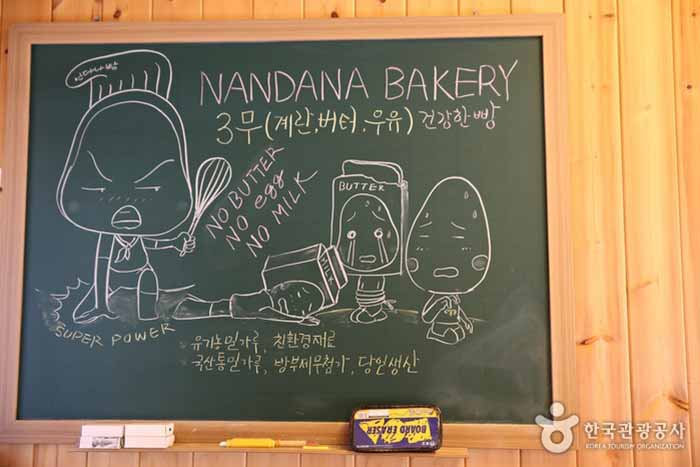 난다나빵
NANDANA BAKERY
3무 (계란, 버터, 우유) 건강한빵
NO BUTTER
NO egg
NO MILK
BUTTER
MILK
SUPER POWER
유기농밀가루, 친환경재료
국산통밀가루, 방부제무첨가, 당일생산
BOARD ERASER
한국관광공사
KOREA TOURISM ORGANIZATION